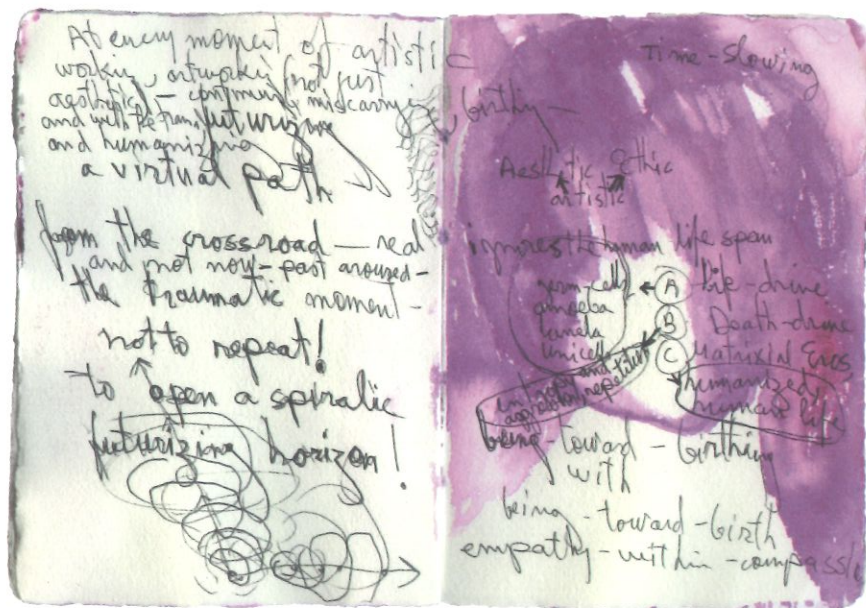 At every moment of artistic
working, artworking (not just
aesthetics) — continuing miscarrying
and with the futurizing
and humanizing
a virtual path
from the crossroad — real
and not now - past aroused -
the traumatic moment -
not to repeat!
to open a spiralic
futurizing horizon!
Time - Slowing
birthing —
Aesthetic Ethic
artistic
ignores the human life span
germ-cells
amoeba
unicell
A life-drive
B Death-drive
C Matrixial Eros
aggression repetition
humanized
human life
being - toward - birthing
with
being - toward - birth
empathy - within - compassio